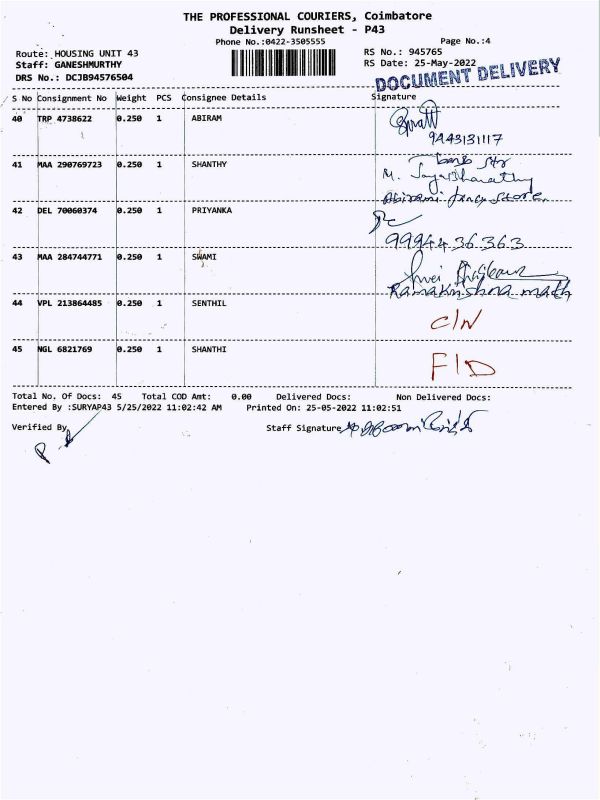 THE PROFESSIONAL COURIERS, Coimbatore
Delivery Runsheet - P43
Phone No.:0422-3505555 Page No.:4
Route: HOUSING UNIT 43 RS No.: 945765
Staff: GANESHMURTHY RS Date: 25-May-2022
DRS No.: DCJB94576504
DOCUMENT DELIVERY
S No Consignment No Weight PCS Consignee Details Signature
40 TRP 4738622 0.250 1 ABIRAM
9443131117
41 MAA 290769723 0.250 1 SHANTHY
M.
Abirami fancy store
42 DEL 70060374 0.250 1 PRIYANKA
9994436363
43 MAA 284744771 0.250 1 SWAMI
Ramakrishna math
44 VPL 213864485 0.250 1 SENTHIL C/N
45 NGL 6821769 0.250 1 SHANTHI F/D
Total No. Of Docs: 45 Total COD Amt: 0.00 Delivered Docs: Non Delivered Docs:
Entered By :SURYAP43 5/25/2022 11:02:42 AM Printed On: 25-05-2022 11:02:51
Verified By Staff Signature